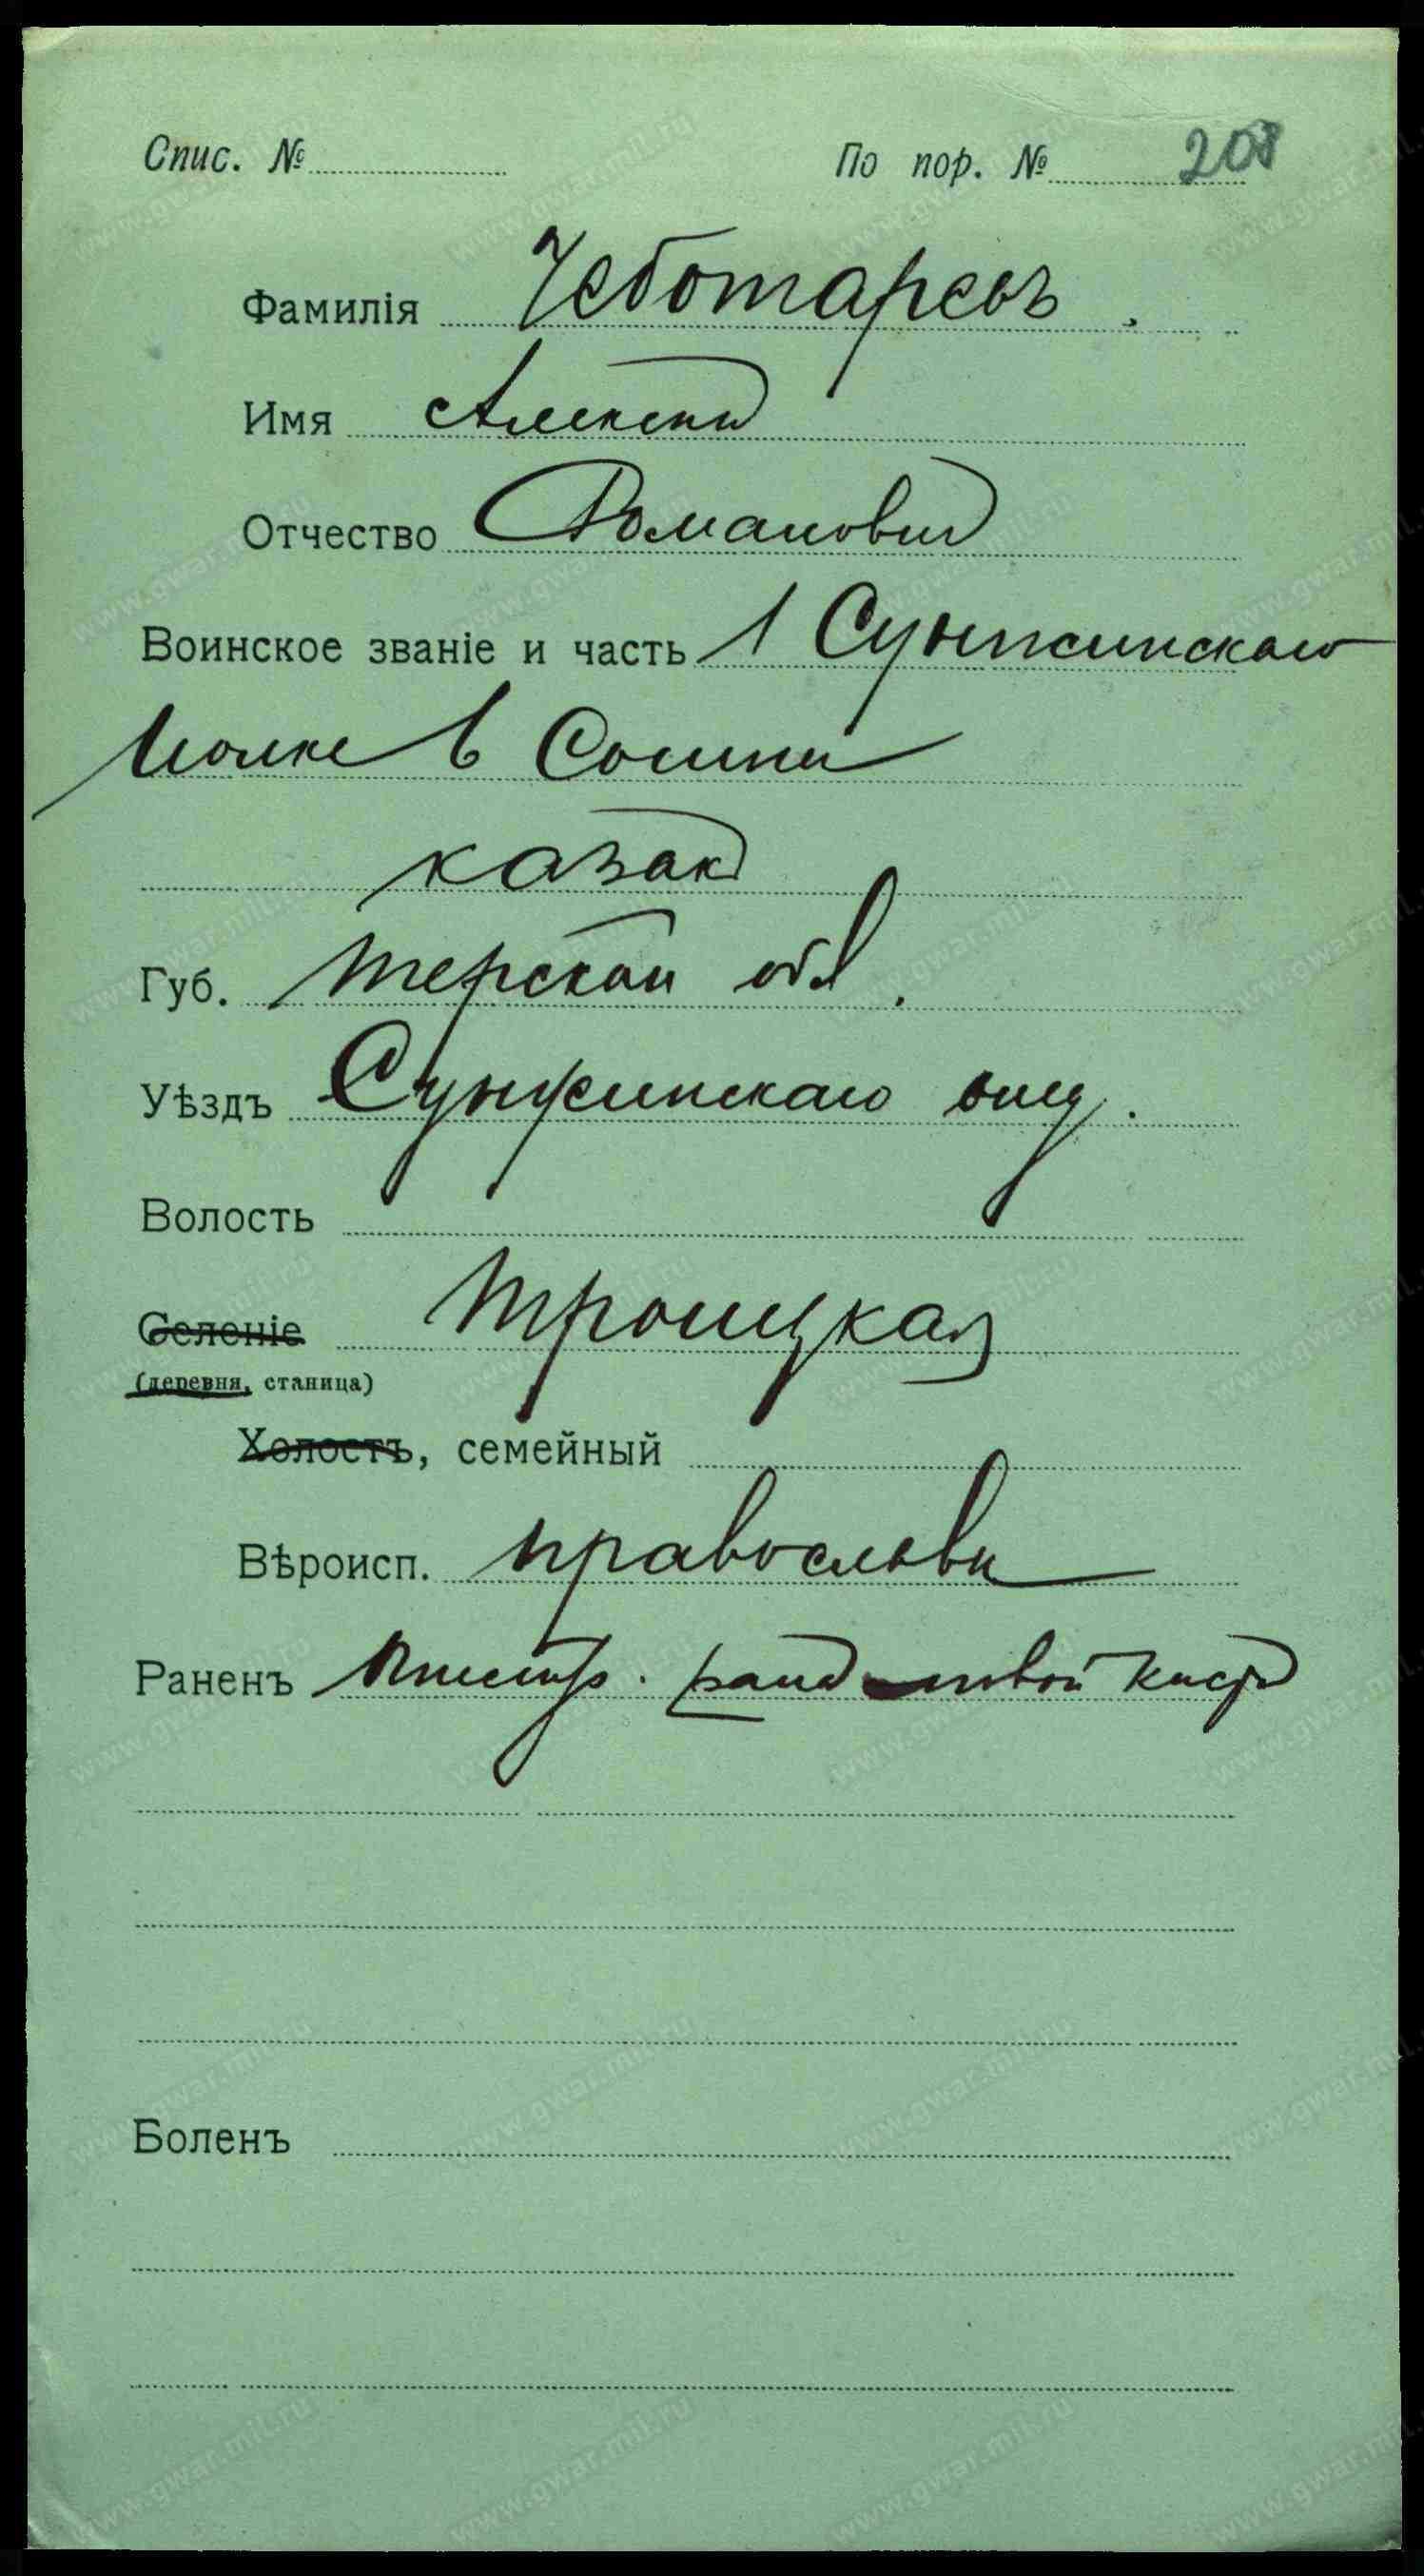 Спис. № По пор. № 208
Фамилія Чеботаревъ.
Имя Алексѣй
Отчество Романович
Воинское званіе и часть 1 Сунженскаго
Полка 6 Сотни
казак
Губ. Терской обл.
Уѣздъ Сунженскаго отд.
Волость
Селеніе Троицкая
(деревня, станица)
Холостъ, семейный
Вѣроисп. православн
Раненъ Огнестр. рана левой кисти
Боленъ
www.gwar.mil.ru